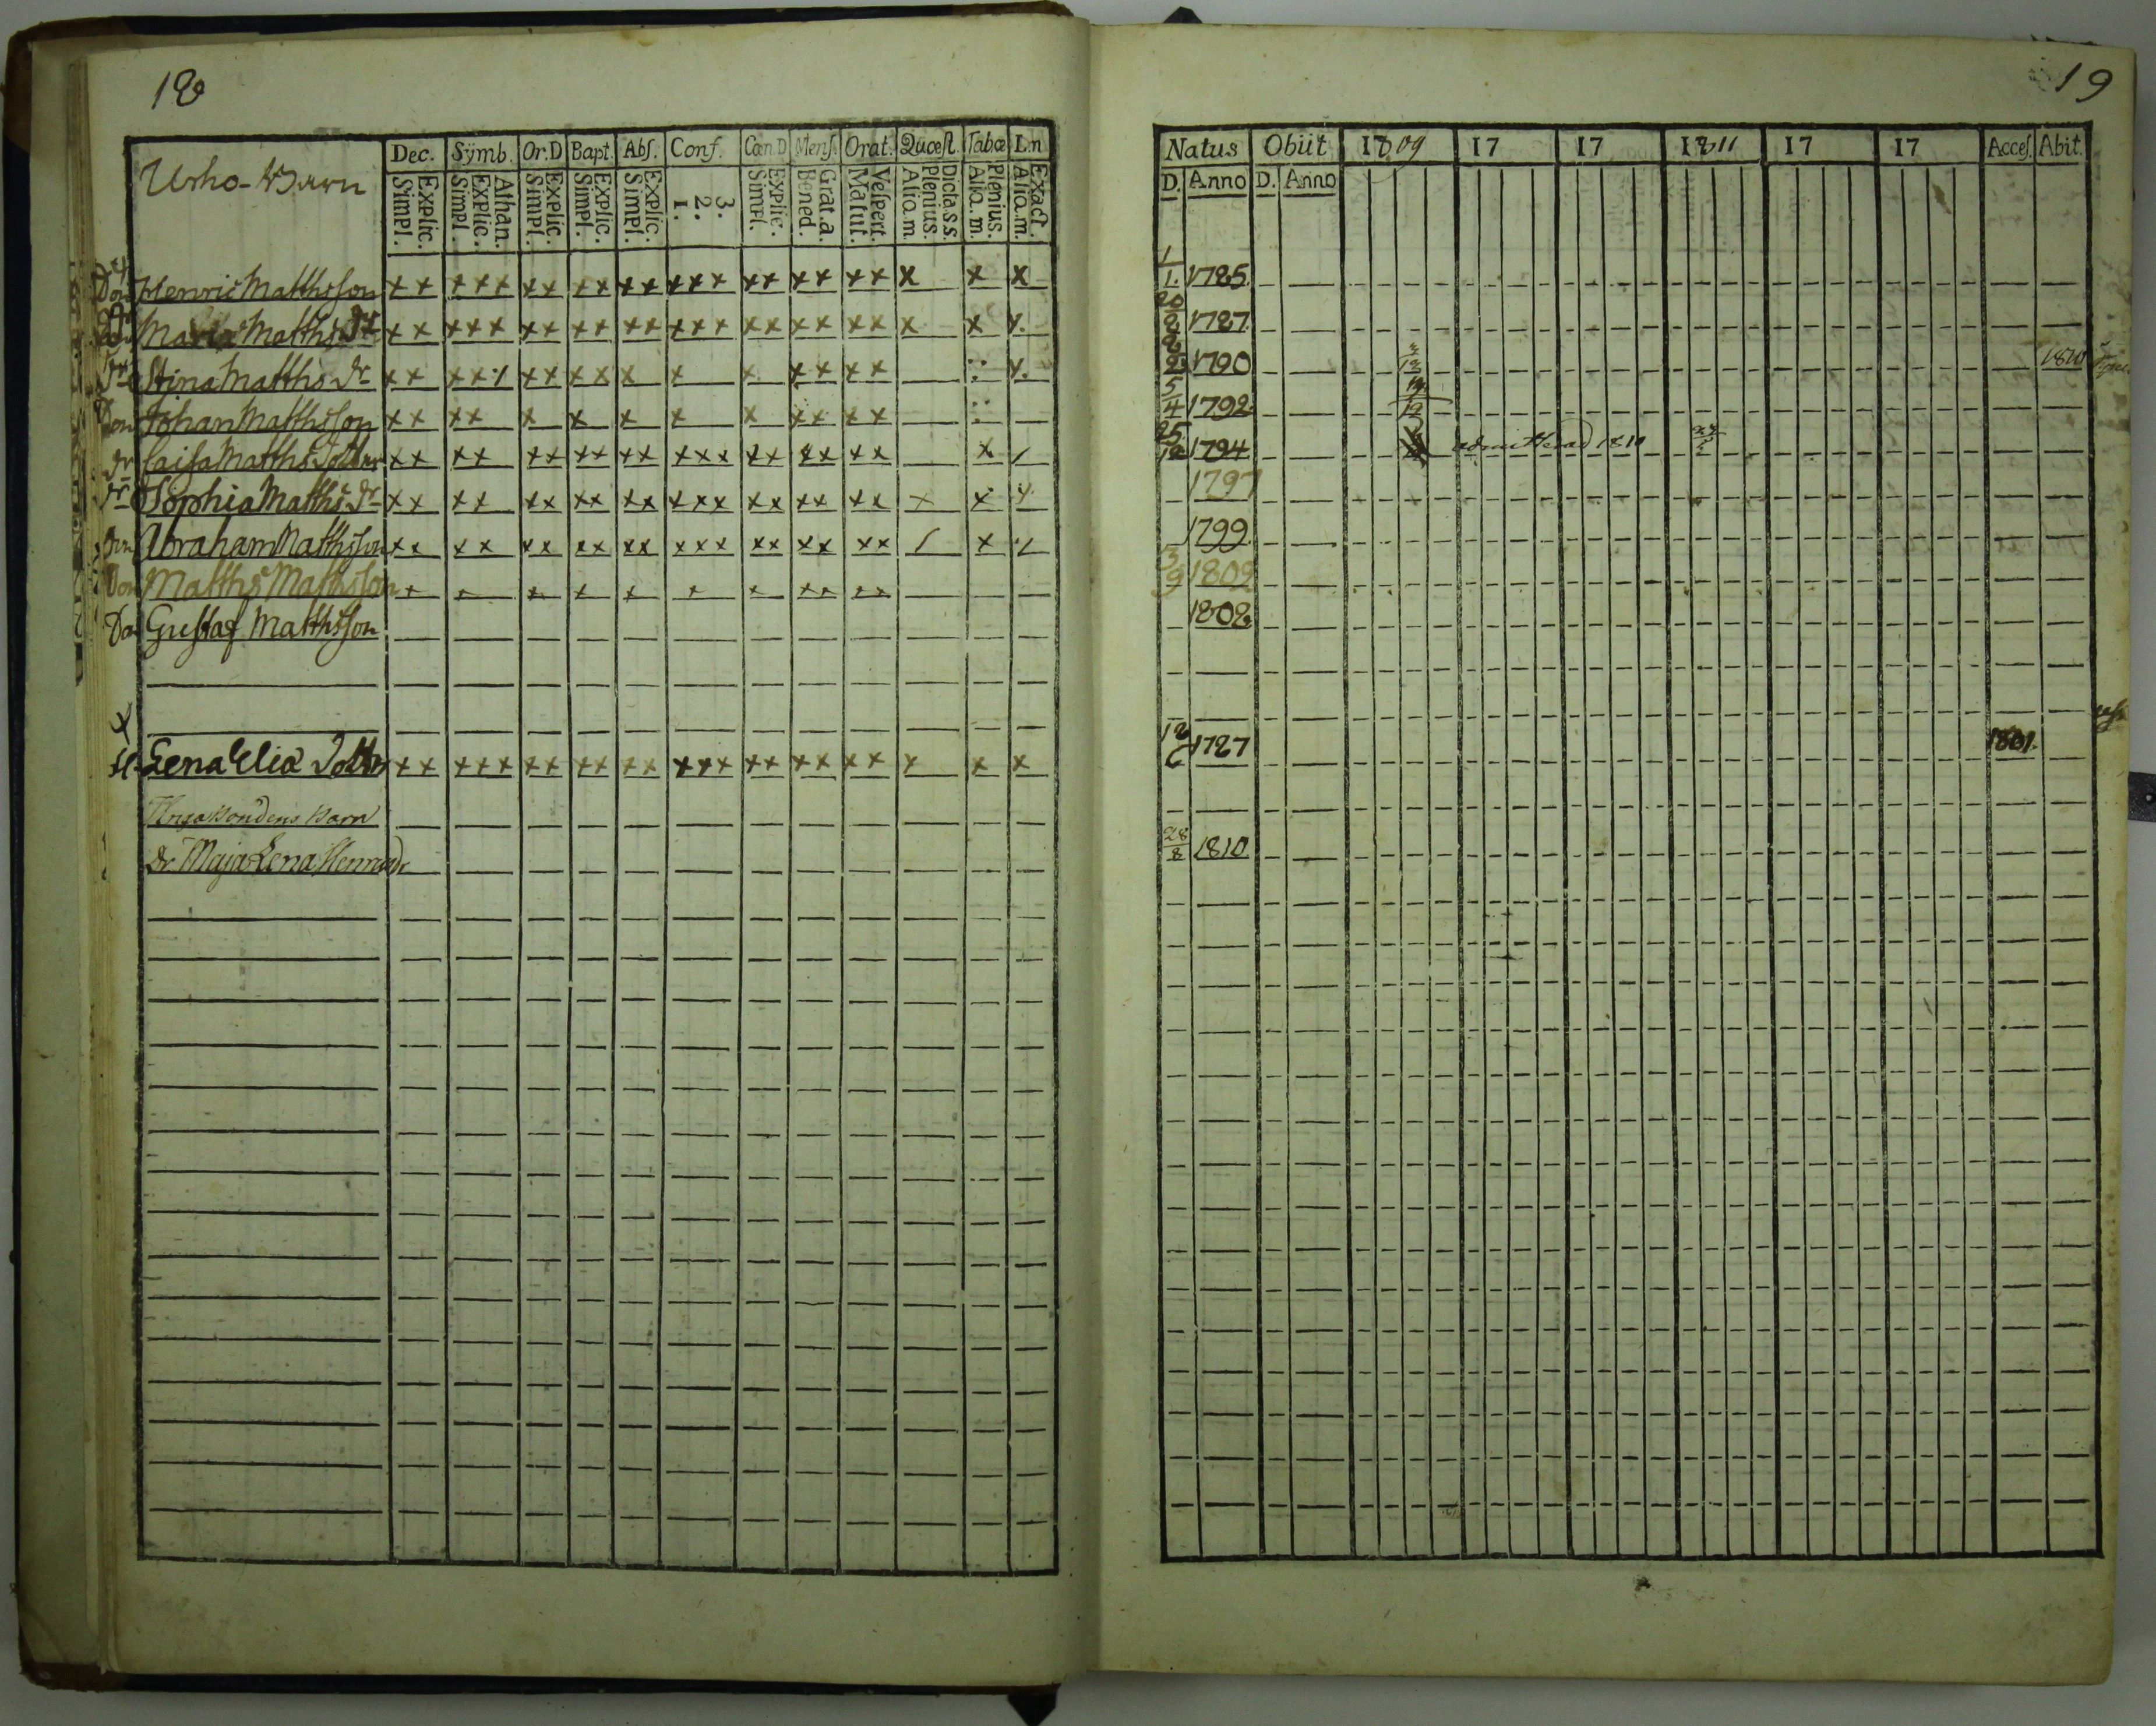 18
Urho-Barn
Dec. Symb. Or.D Bapt. Abs. Conf. Cœn.D Mens. Orat. Quæst. Tabœ L.n
Explic. Simpl. Athan. Explic. Simpl. Explic. Simpl. Explic. Simpl. Explic. Simpl. 3. 2. 1. Explic. Simpl. Grat.a. Bened. Vespert. Matut. Dicta.s.s. Plenius. Aliq.m. Plenius. Aliq.m. Exact. Aliq.m.
Don Henric Matthsson x x x x x x x x x x x x x x x x x x x x x x x
Maria Matths Dr x x x x x x x x x x x x x x x x x x x x x x
Dr Stina Matths Dr x x x x x x x x x x x x x x x
Don Johan Matthsson x x x x x x x x x x x x x
Dr Caisa Matths Dotter x x x x x x x x x x x x x x x x x x x x
Dr Sophia Matths Dr x x x x x x x x x x x x x x x x x x x x x
Don Abraham Mathsson x x x x x x x x x x x x x x x x x x x x
Don Matths Mathsson x x x x x x x x x x x
Don Gustaf Matthsson
Lena Elia Dotter x x x x x x x x x x x x x x x x x x x x x x x
Unga Bondens Barn
Dr. Maja Lena Henricsdr
19
Natus Obiit 1809 17 17 1811 17 17 Acces. Abit.
D. Anno D. Anno
1/1. 1785
20/8 1787
1790 1810
5/4 1792
25/12 1794 admitterad 1810
1797
1799
3/9 1802
1808
18/6 1787 1801
28/8 1810